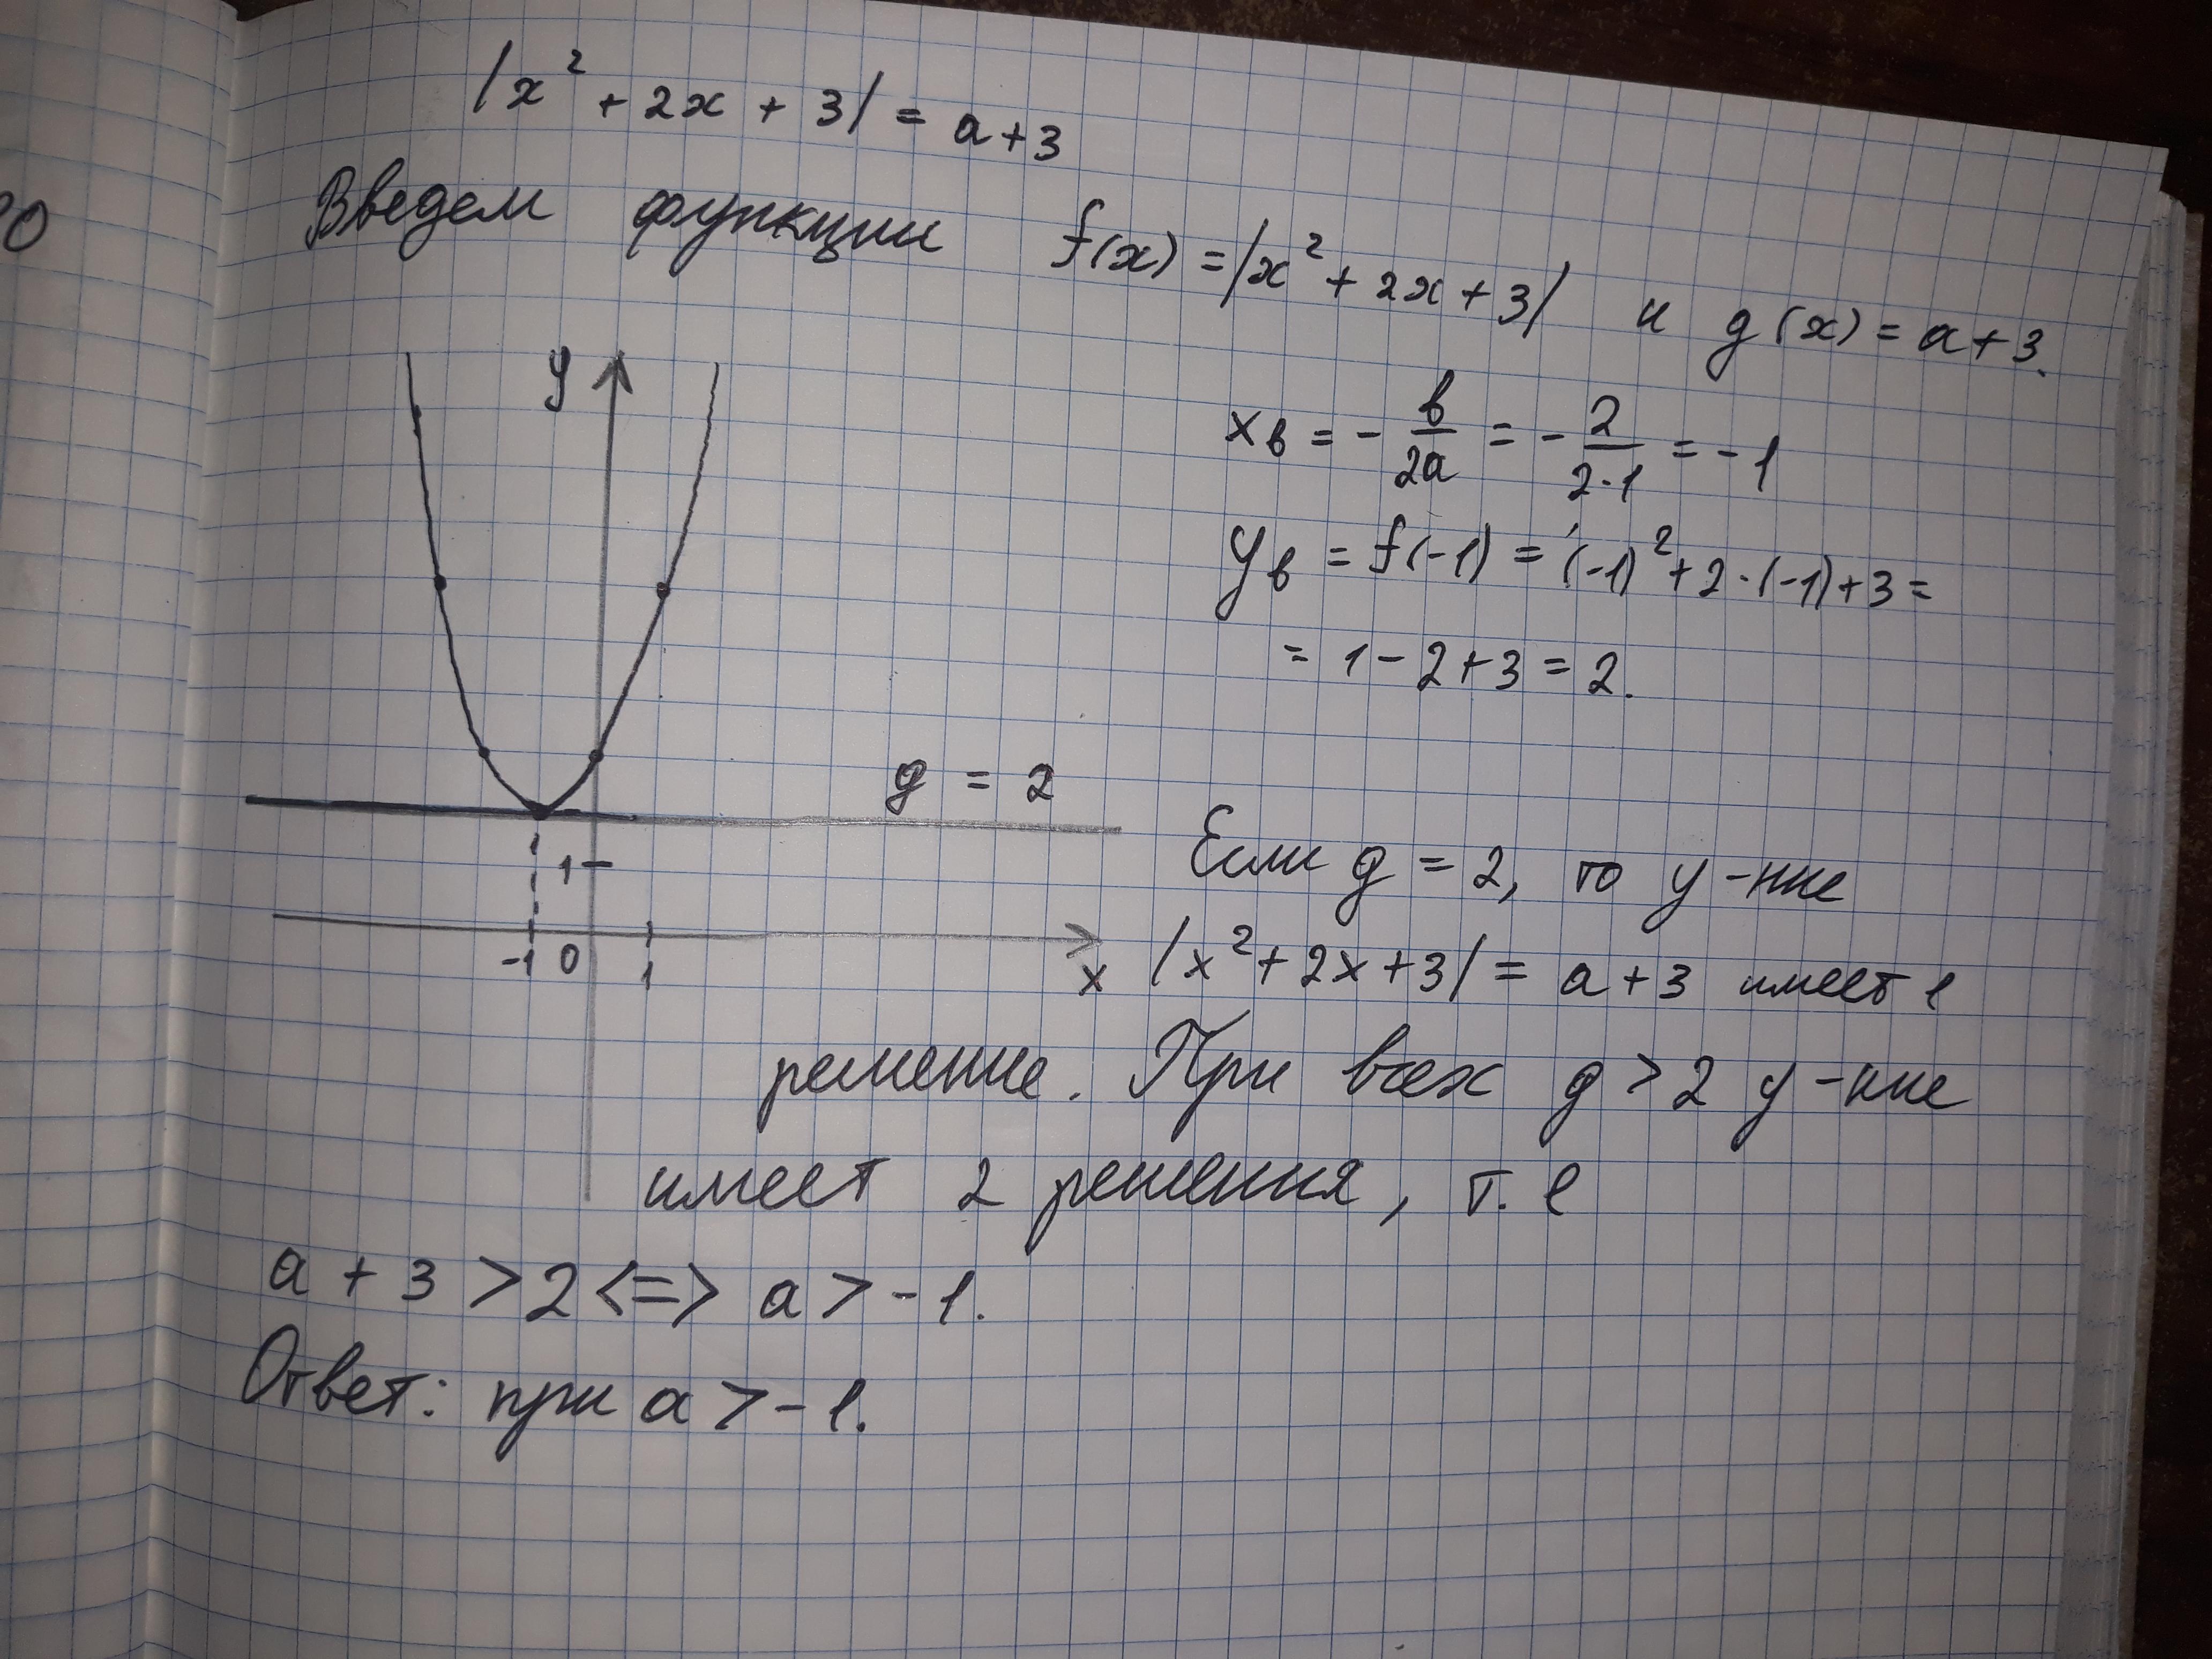 |x² + 2x + 3| = a + 3
Введем функции f(x) = |x² + 2x + 3| и g(x) = a + 3.
y
x в = - в/2a = - 2/2·1 = -1
y в = f(-1) = (-1)² + 2·(-1) + 3 =
= 1 - 2 + 3 = 2.
g = 2
1
Если g = 2, то у-ние
-1 0 1 x
|x² + 2x + 3| = a + 3 имеет 1
решение. При всех g > 2 у-ние
имеет 2 решения, т.е
a + 3 > 2 <=> a > -1.
Ответ: при a > -1.
0